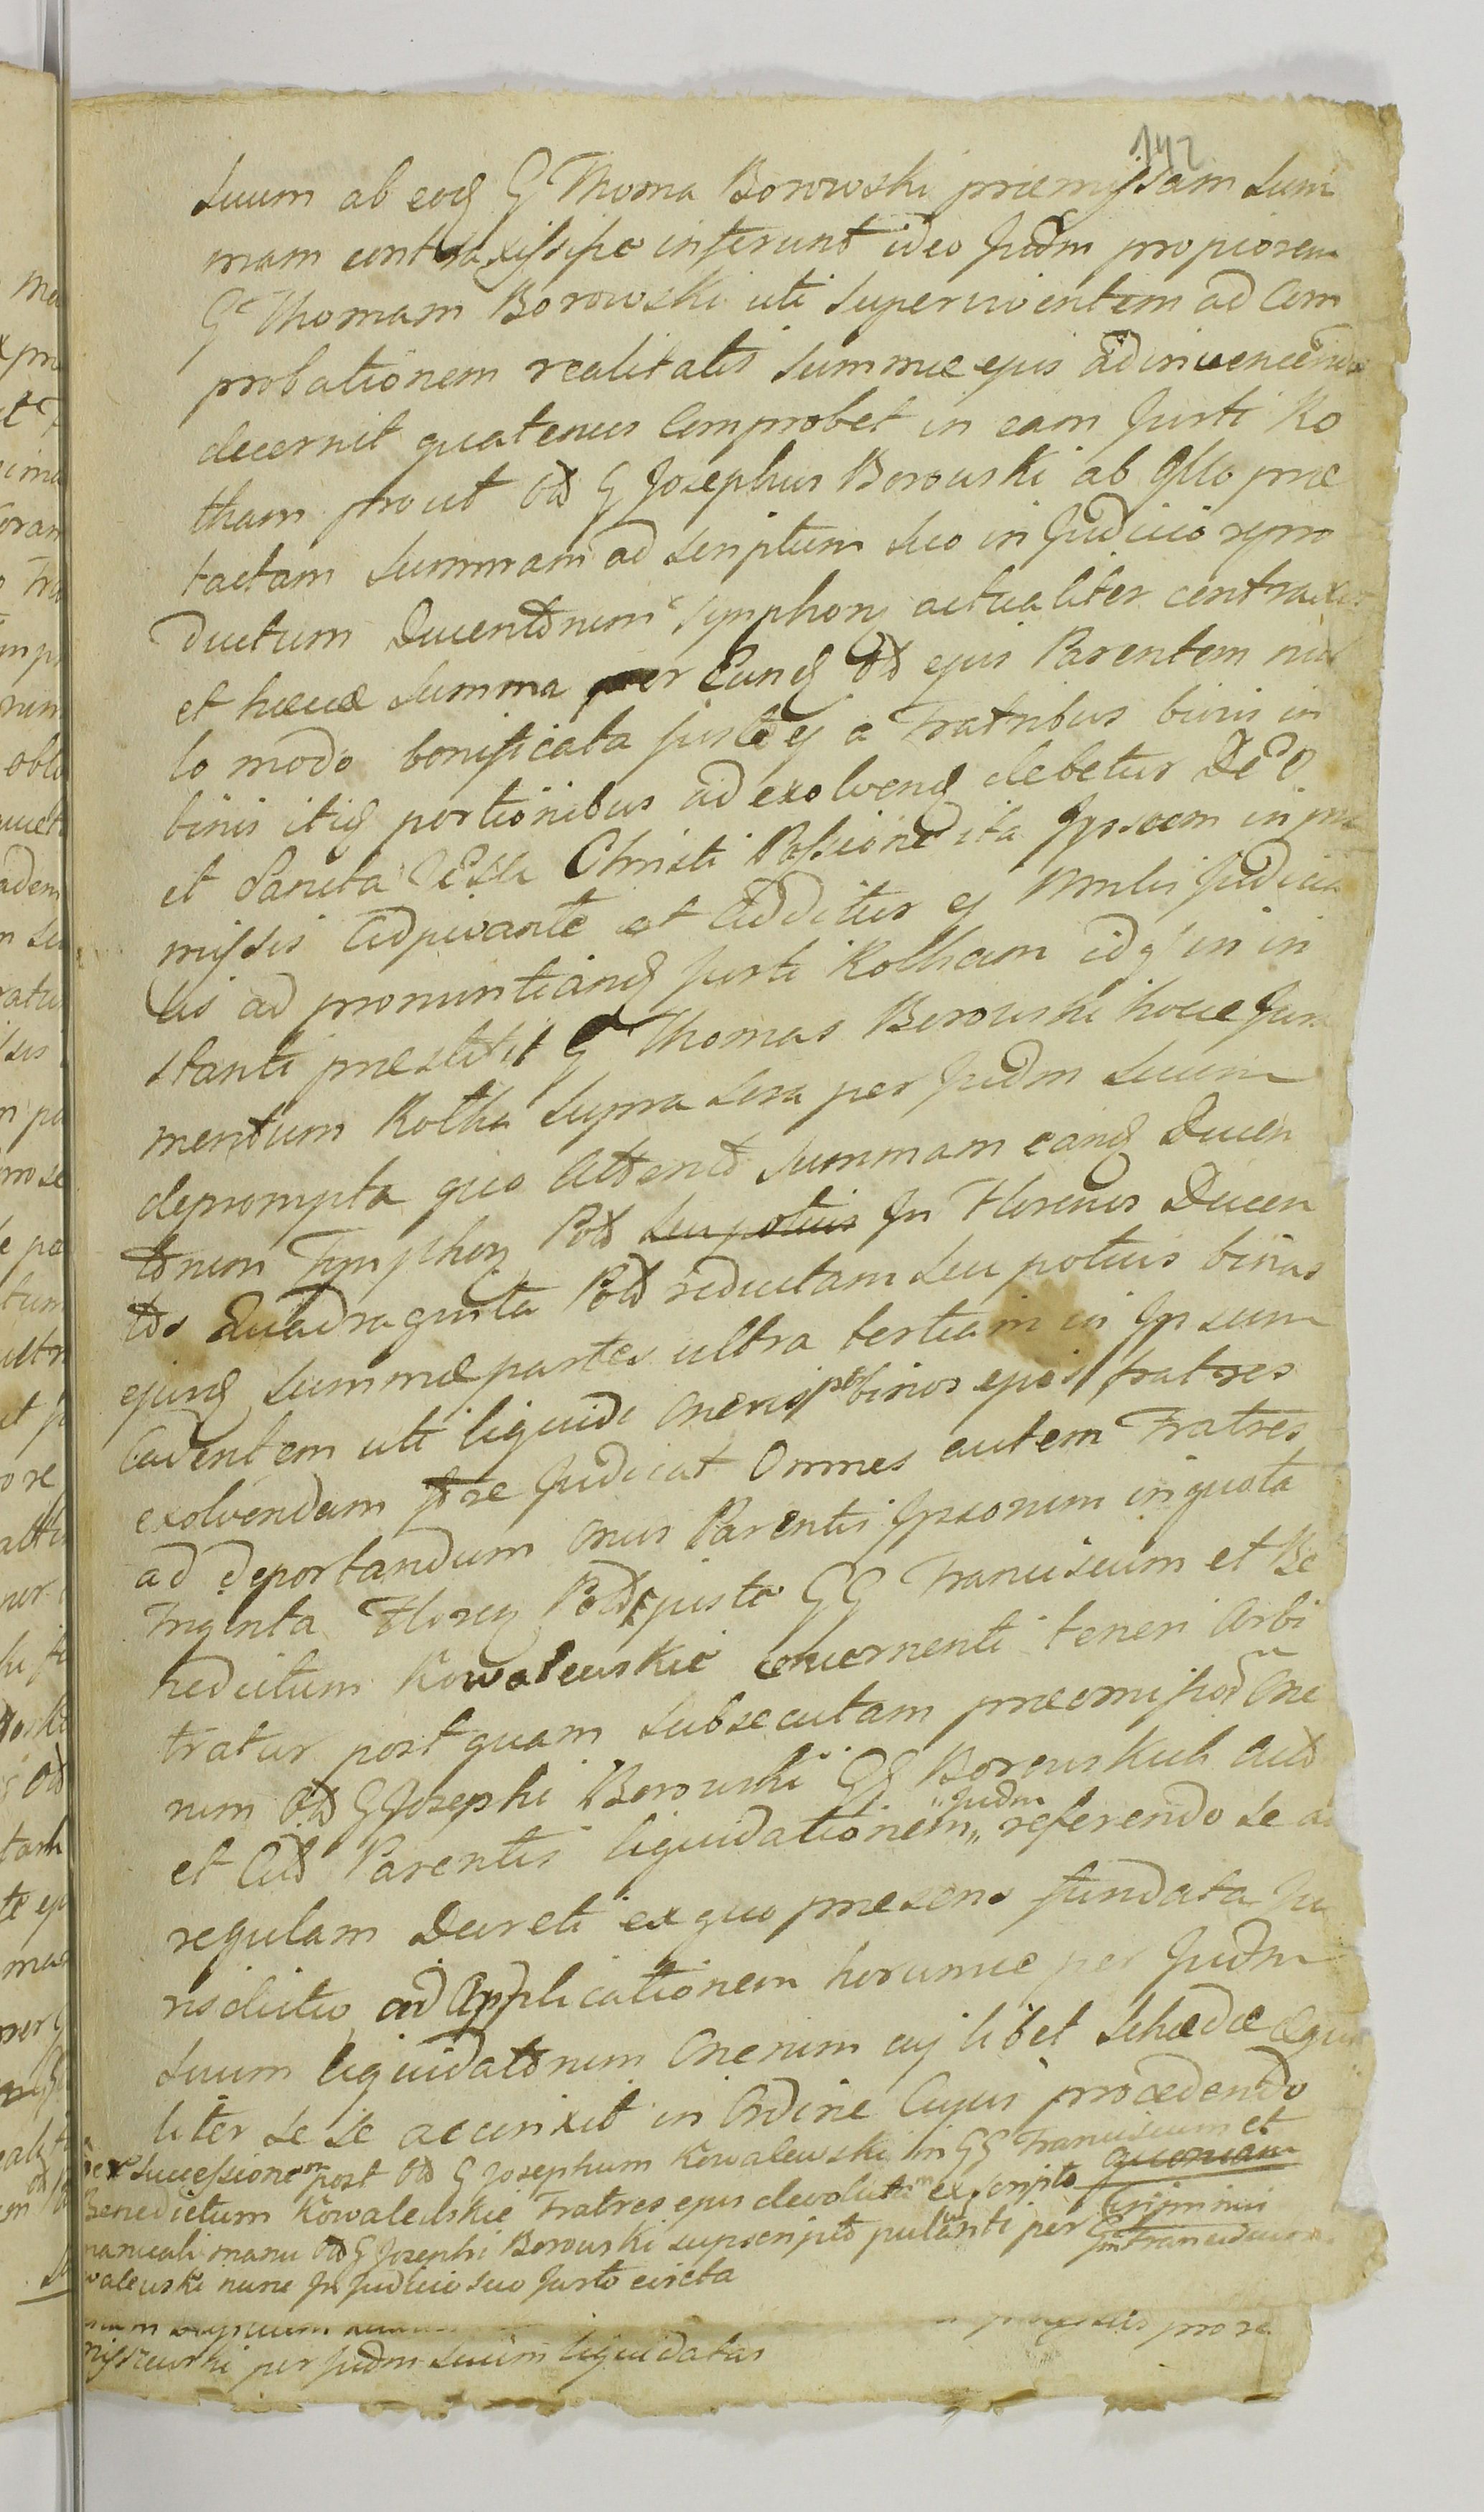 142
suum ab eod G Thoma Borowski præmissam Sum
mam contraxisse inferunt ideo Judm propiorem
G Thomam Borowski uti superviventem ad Com
probationem realitatis Summæ ejus
decernit quatenus Comprobet in eam Jurti Ro
tham prout Old G Josephus Borowski ab Illo præ
tactam Summam ad Scriptum suo in Judicio repro
ductum Ducentorum Tymphon actualiter contraxit
et hæcce Summa per Eund Old ejus Parentem nul
lo modo bonificata justeq a Fratribus binis in
binis itiq portionibus ad exolvend debetur DEO
et Sancta JESU Christi Passione ita Ipsoem in præ
missis Adjuvante et Additur ej Mnlis Judicia
lis ad pronuntiand Jurti Rotham idq in in
stanti præstitit G Thomas Borowski hocce Jura
mentum Rotha Supra sua per Judm suum
deprompta quo Attento Summam eand Ducen
torum Tymphon Pol seu potius In Florenos Ducen
tos Quadraginta Pol reductam seu potius binas
ejusd Summæ partes ultra tertiam in Ipsum
Cadentem uti liquidi oneris per binos ejus fratres
exolvendam fore Judicat Omnes autem Fratres
ad deportandum onus Parentis Ipsorum in quota
Triginta Floren Pol juste GG Franciscum et Be
nedictum Kowalewskie concernenti teneri Arbi
tratur post quam subsecutam præmissor One
rum Old G Josephi Borowski GG Borowskich
et Parentis liquidationem Judm referendo se a
regulam Decreti ex quo præsens fundata Ju
risdictio ad Applicationem horumce per Judm
suum liquidatorum Onerum cuj libet Schædæ Equa
liter se se accinxit in Ordine Cujus procedendo
successione post Old G Josephum Kowalewski in GG Franciscum et quoniam
Benedictum Kowalewskie Fratres ejus devoluta ex scripto
manuali manu Old G Josephi Borowski supscripto per G Franciscum
walewski nunc In Judicio suo Jurto
per Judm Suum liquidatas